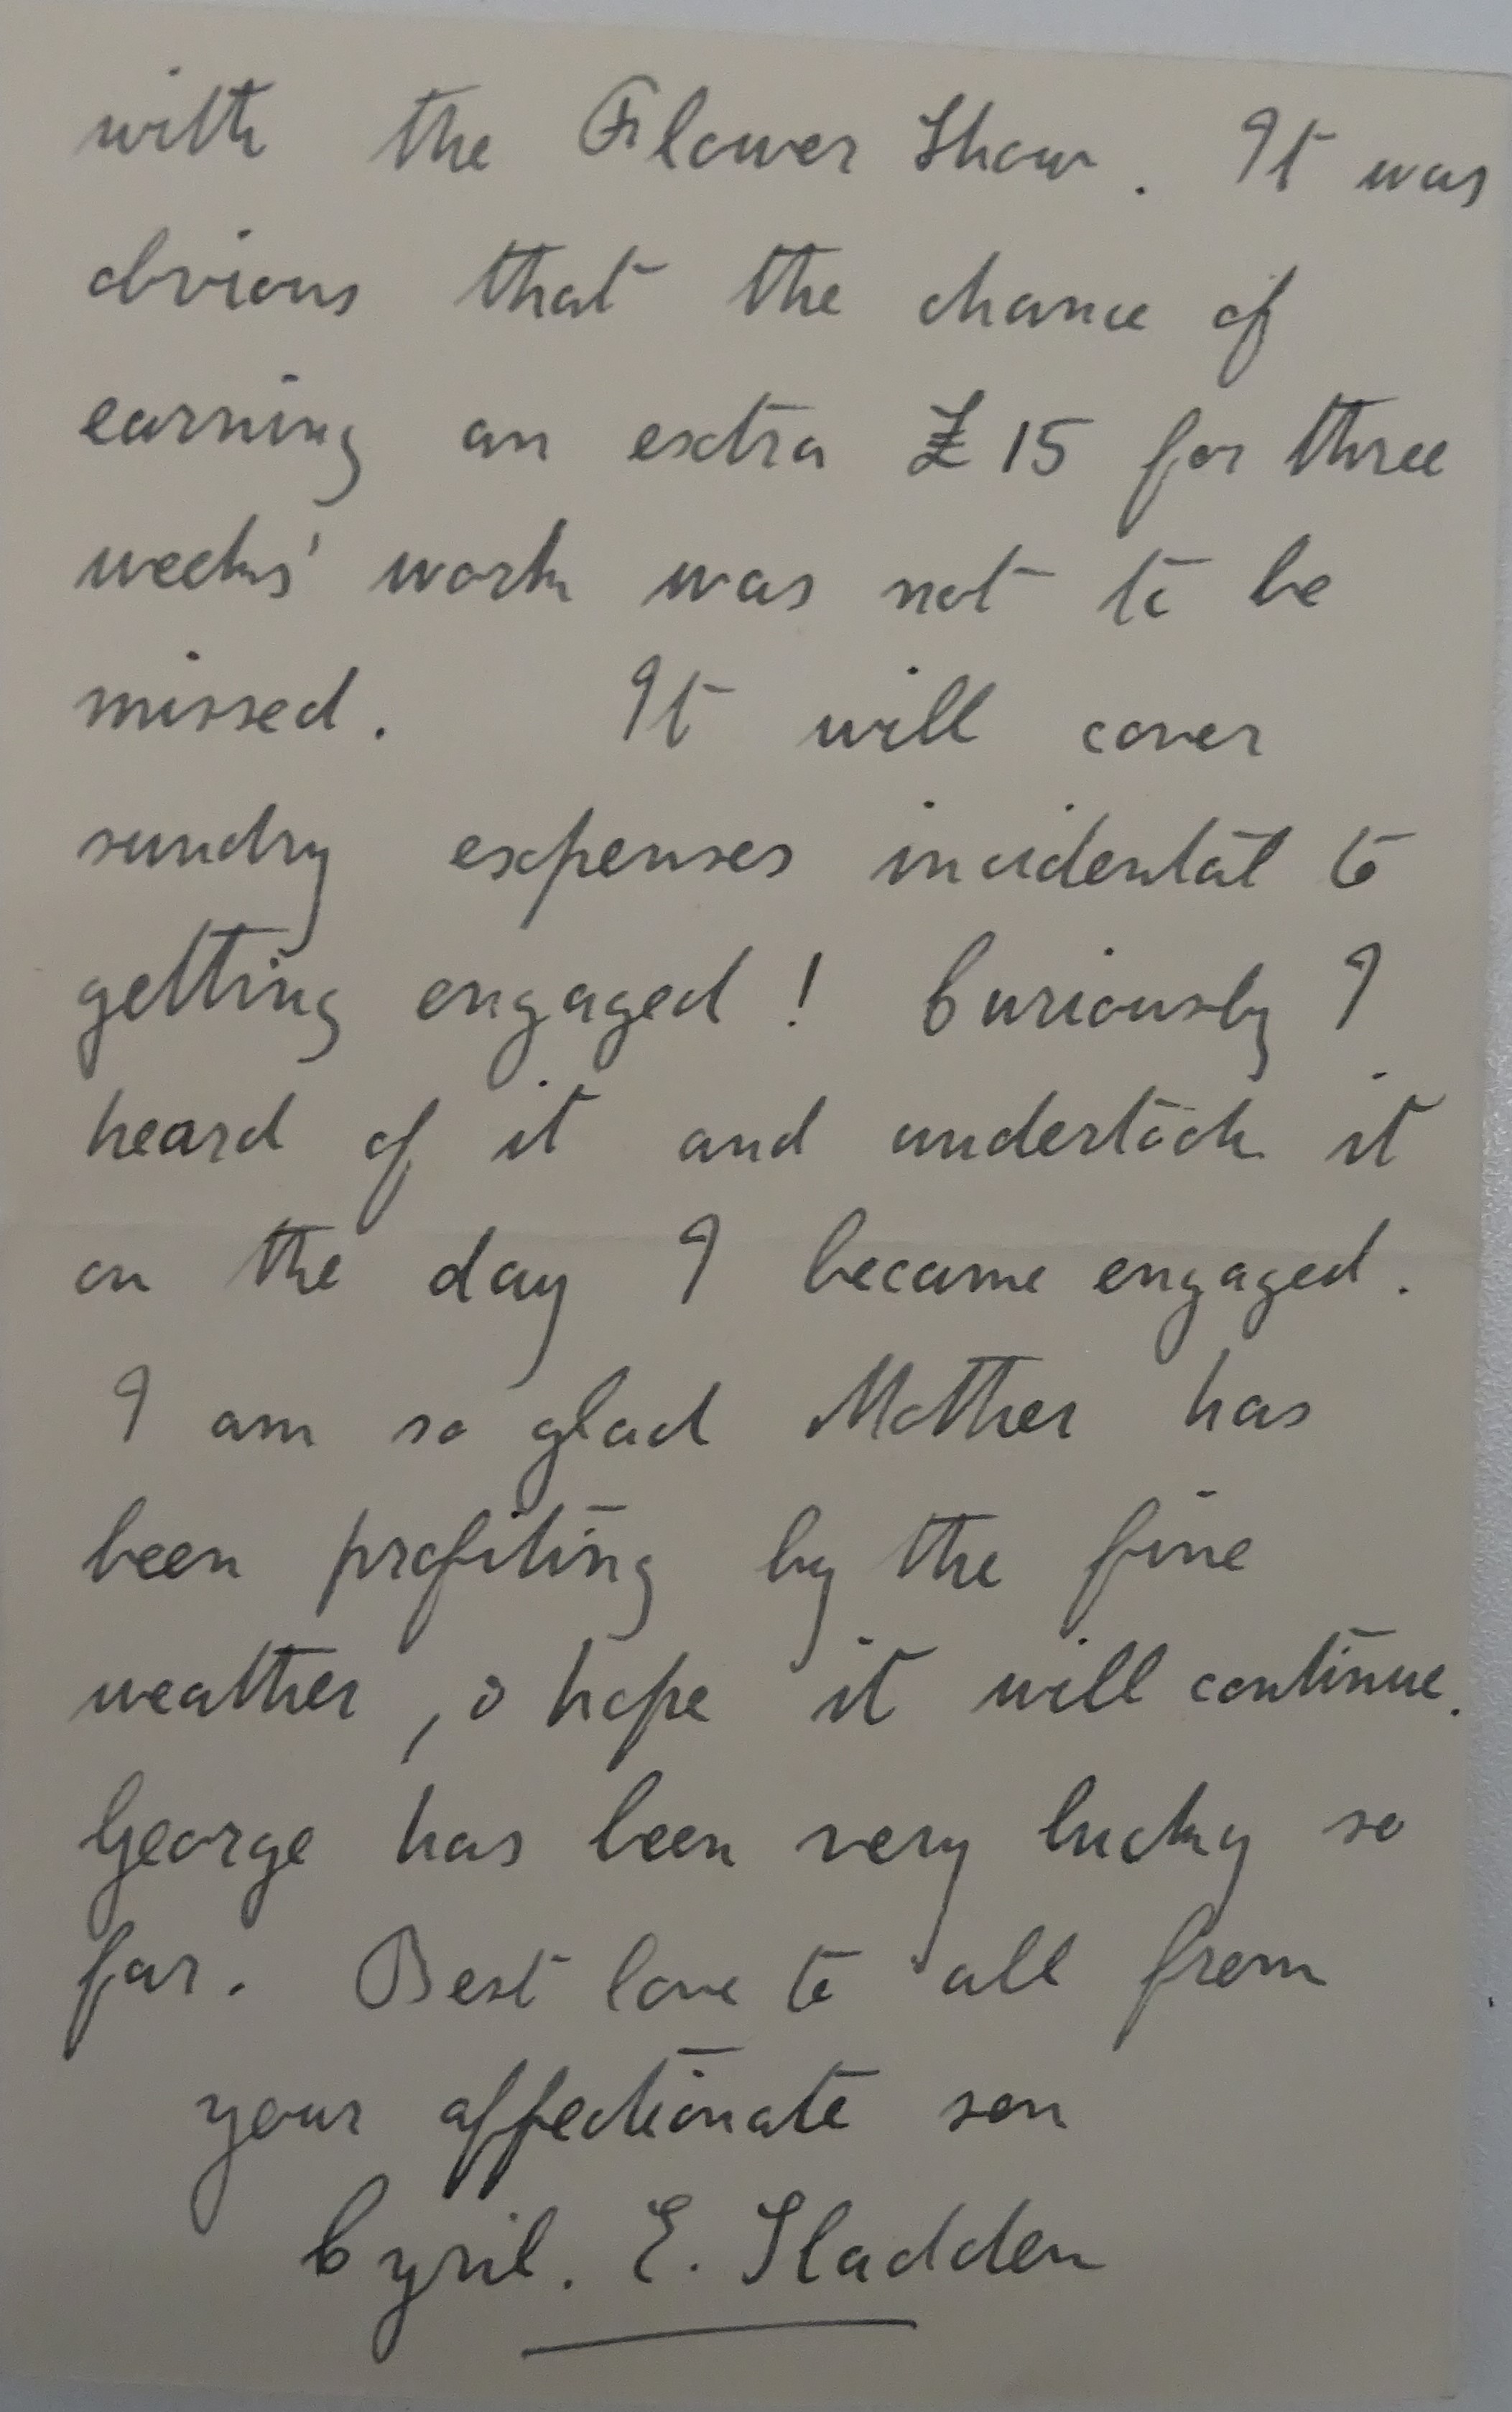 with the Flower Show. It was
obvious that the chance of
earning an extra £15 for three
weeks' work was not to be
missed. It will cover
sundry expenses incidental to
getting engaged! Curiously I
heard of it and undertook it
on the day I became engaged.
I am so glad Mother has
been profiting by the fine
weather, & hope it will continue.
George has been very lucky so
far. Best love to all from
your affectionate son
Cyril. E. Sladden